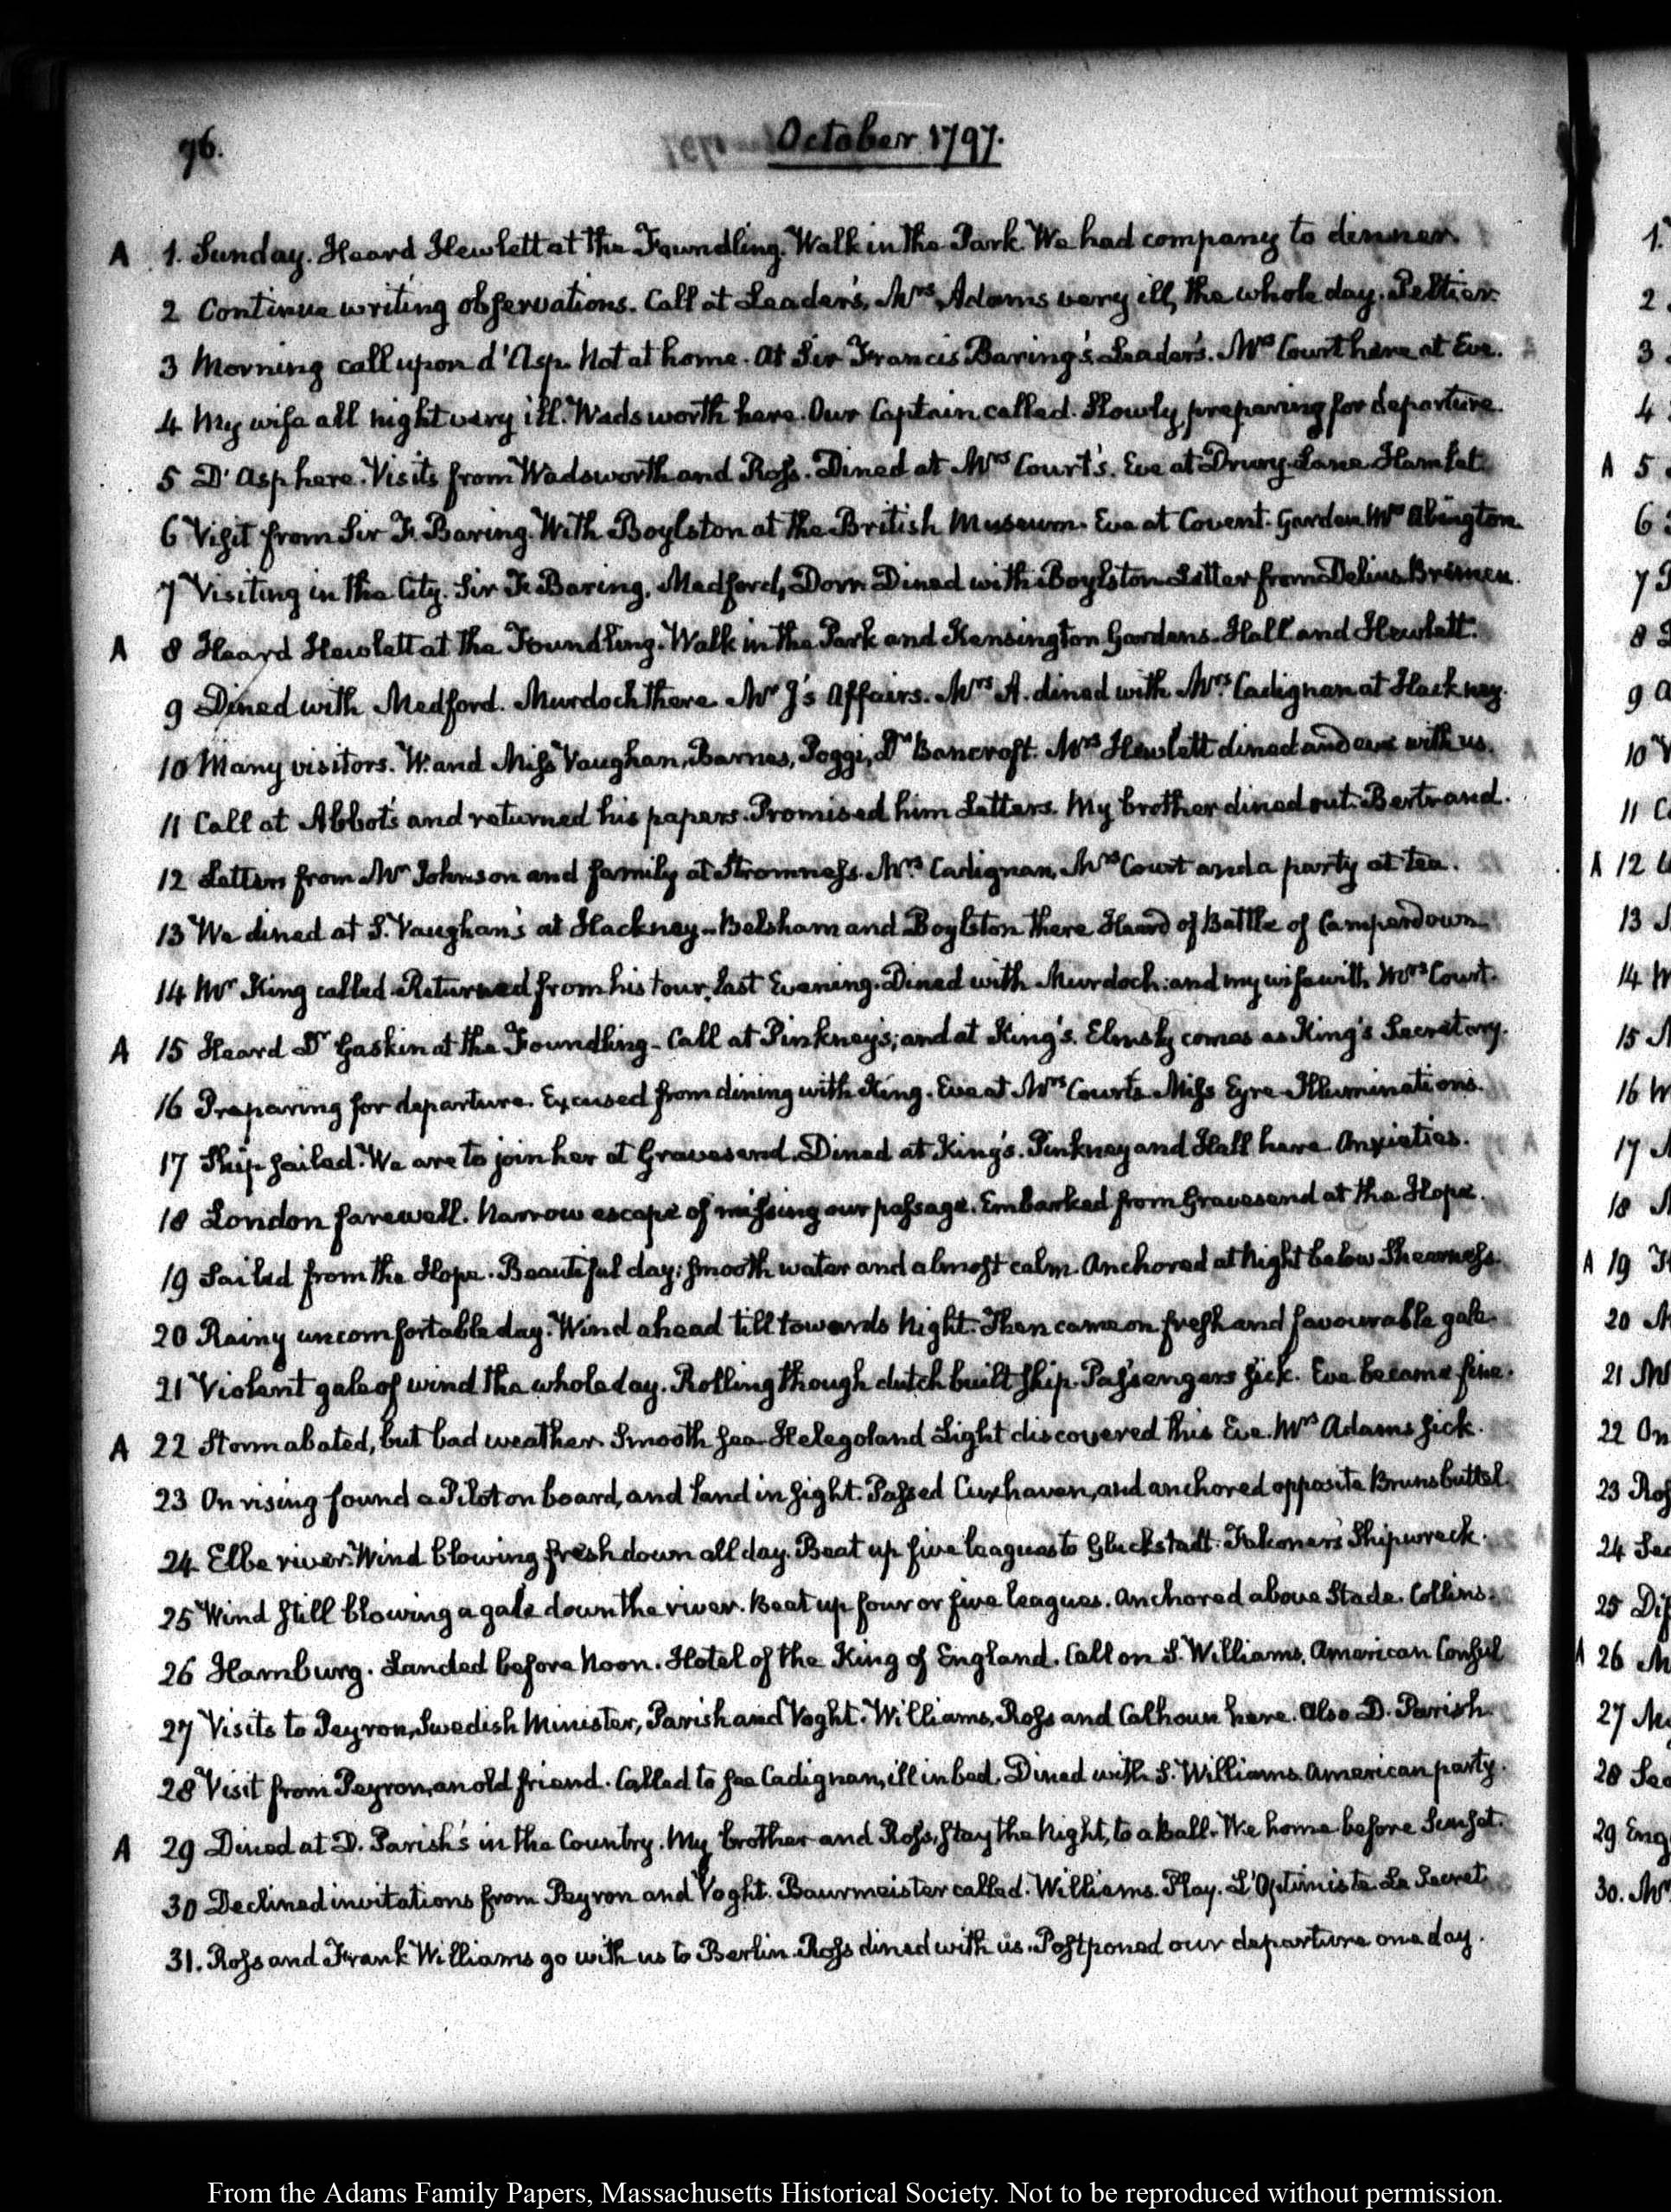 96.
October 1797.
A 1. Sunday. Heard Hewlett at the Foundling. Walk in the Park. We had company to dinner.
2 Continue writing observations. Call at Leader's, Mrs Adams very ill, the whole day. Peltier.
3 Morning call upon d'Asp. Not at home. At Sir Francis Baring's Leader's. Mrs Court here at Eve.
4 My wife all night very ill. Wadsworth here. Our Captain called. Slowly preparing for departure.
5 D'Asp here. Visits from Wadsworth and Ross. Dined at Mrs Court's. Eve at Drury-Lane Hamlet.
6 Visit from Sir F. Baring. With Boylston at the British Museum. Eve at Covent-Garden Mrs Abington.
7 Visiting in the City. Sir F. Baring, Medford, Dorr. Dined with Boylston Letter from Delius Bremen.
A 8 Heard Hewlett at the Foundling. Walk in the Park and Kensington Gardens. Hall and Hewlett.
9 Dined with Medford. Murdoch there. Mr J's Affairs. Mrs A. dined with Mrs Cadignan at Hackney.
10 Many visitors. W. and Miss Vaughan, Barnes, Poggi, Dr Bancroft. Mrs Hewlett dined and eve with us.
11 Call at Abbot's and returned his papers. Promised him Letters. My brother dined out. Bertrand.
12 Letters from Mr Johnson and family at Stromness. Mrs Cadignan, Mrs Court and a party at tea.
13 We dined at S. Vaughan's at Hackney - Belsham and Boylston there Heard of Battle of Camperdown.
14 Mr King called. Returned from his tour, last Evening. Dined with Murdoch: and my wife with Mrs Court.
A 15 Heard Dr Gaskin at the Foundling - Call at Pinkney's; and at King's. Elmsly comes as King's Secretary.
16 Preparing for departure. Excused from dining with King. Eve at Mrs Court's. Miss Eyre. Illuminations.
17 Ship sailed. We are to join her at Gravesend. Dined at King's. Pinkney and Hall here. Anxieties.
18 London farewell. Narrow escape of missing our passage. Embarked from Gravesend at the Hope.
19 Sailed from the Hope. Beautiful day; smooth water and almost calm. Anchored at Night below Sheerness.
20 Rainy uncomfortable day. Wind ahead till towards Night. Then came on fresh and favourable gale.
21 Violent gale of wind the whole day. Rolling though dutch built ship. Passengers sick. Eve became fine.
A 22 Storm abated, but bad weather. Smooth sea - Helegoland Light discovered this Eve. Mrs Adams sick.
23 On rising found a Pilot on board, and Land in sight. Passed Cuxhaven, and anchored opposite Brunsbuttel.
24 Elbe river. Wind blowing fresh down all day. Beat up five leagues to Gluckstadt. Falconer's Shipwreck.
25 Wind still blowing a gale down the river. Beat up four or five leagues. Anchored above Stade. Collins.
26 Hamburg. Landed before Noon. Hotel of the King of England. Call on S. Williams, American Consul
27 Visits to Peyron, Swedish Minister, Parish and Voght. Williams, Ross and Calhoun here. Also D. Parish.
28 Visit from Peyron, an old friend. Called to see Cadignan, ill in bed. Dined with S. Williams. American party.
A 29 Dined at D. Parish's in the Country. My brother and Ross, stay the Night, to a Ball. We home before Sunset.
30 Declined invitations from Peyron and Voght. Baurmeister called. Williams. Play. L'Optimiste Le Secret.
31. Ross and Frank Williams go with us to Berlin. Ross dined with us. Postponed our departure one day.
1.
2
3
4
A 5
6
7
8
9
10
11
A 12
13
14
15
16
17
18
A 19
20
21
22 On
23
24
25
A 26
27
28
29 Eng
30.
From the Adams Family Papers, Massachusetts Historical Society. Not to be reproduced without permission.